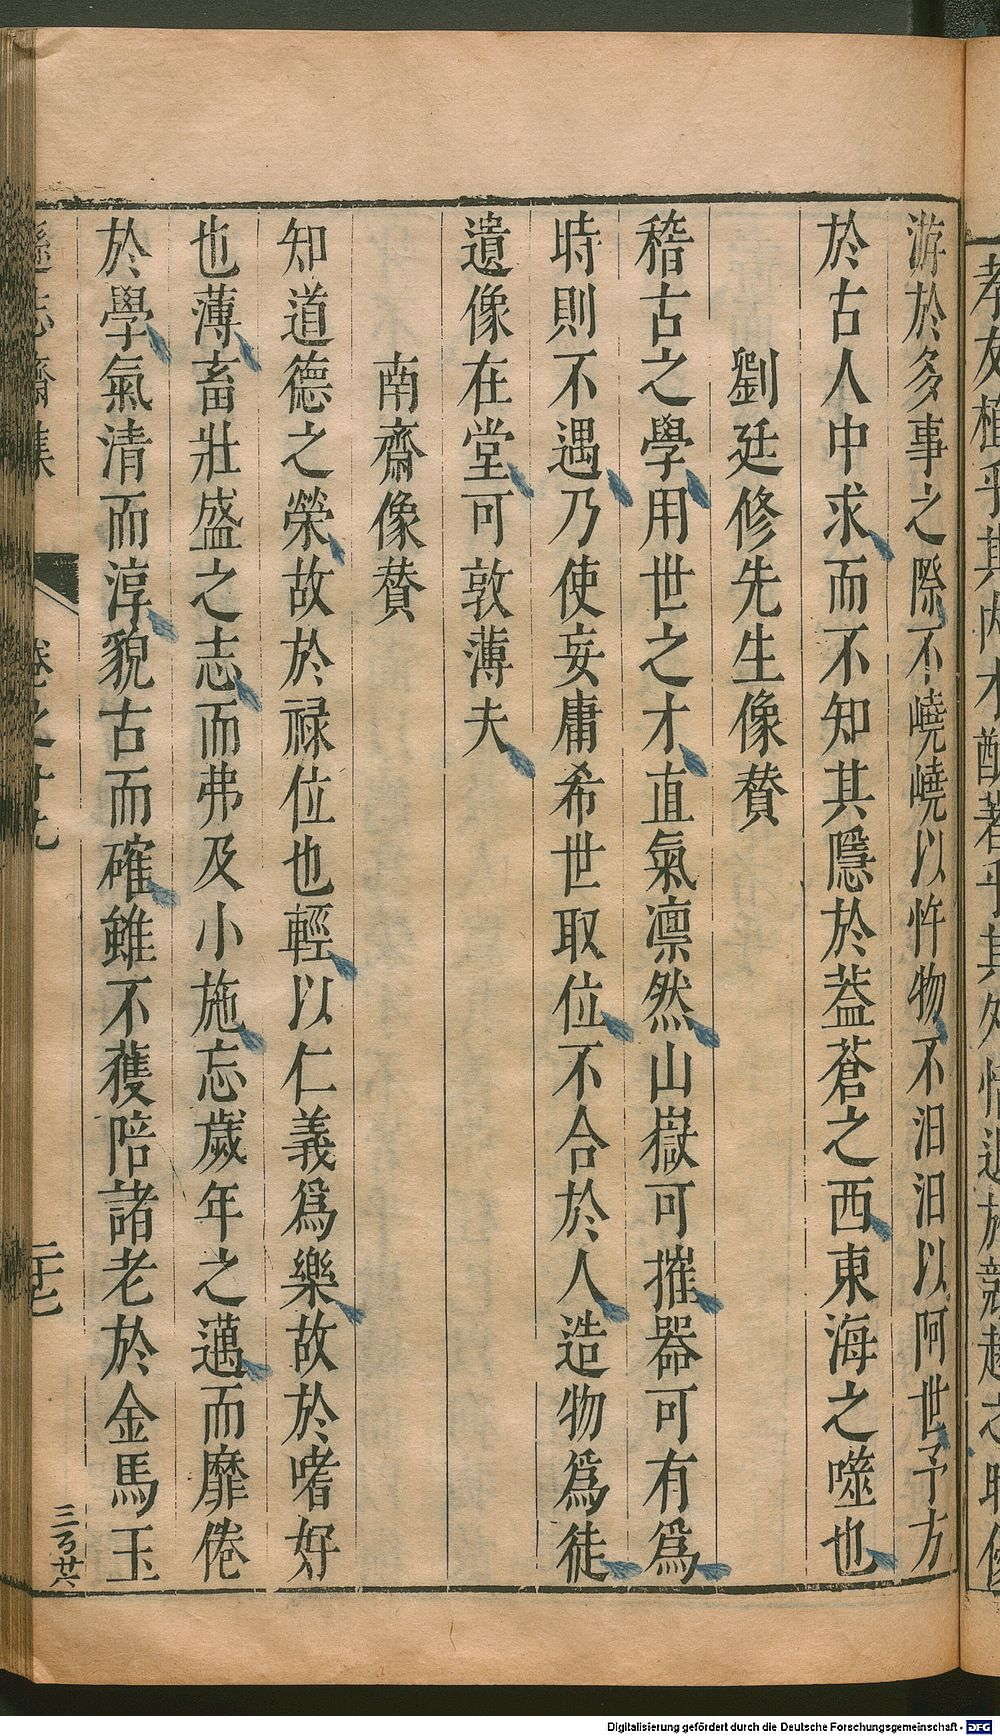 游於多事之際不嶢嶢以忤物不汨汨以阿世予方
於古人中求而不知其隱於葢蒼之西東海之噬也
劉廷修先生像賛
稽古之學用世之才直氣凛然山嶽可摧器可有爲
時則不遇乃使妄庸希世取位不合於人造物爲徒
遺像在堂可敦薄夫
南齋像賛
知道德之榮故於禄位也輕以仁義爲樂故於嗜好
也薄畜壯盛之志而弗及小施忘歲年之邁而靡倦
於學氣清而淳貌古而確雖不獲陪諸老於金馬玉
遜志齋集
卷之十九
二十七
Digitalisierung gefördert durch die Deutsche Forschungsgemeinschaft - DFG